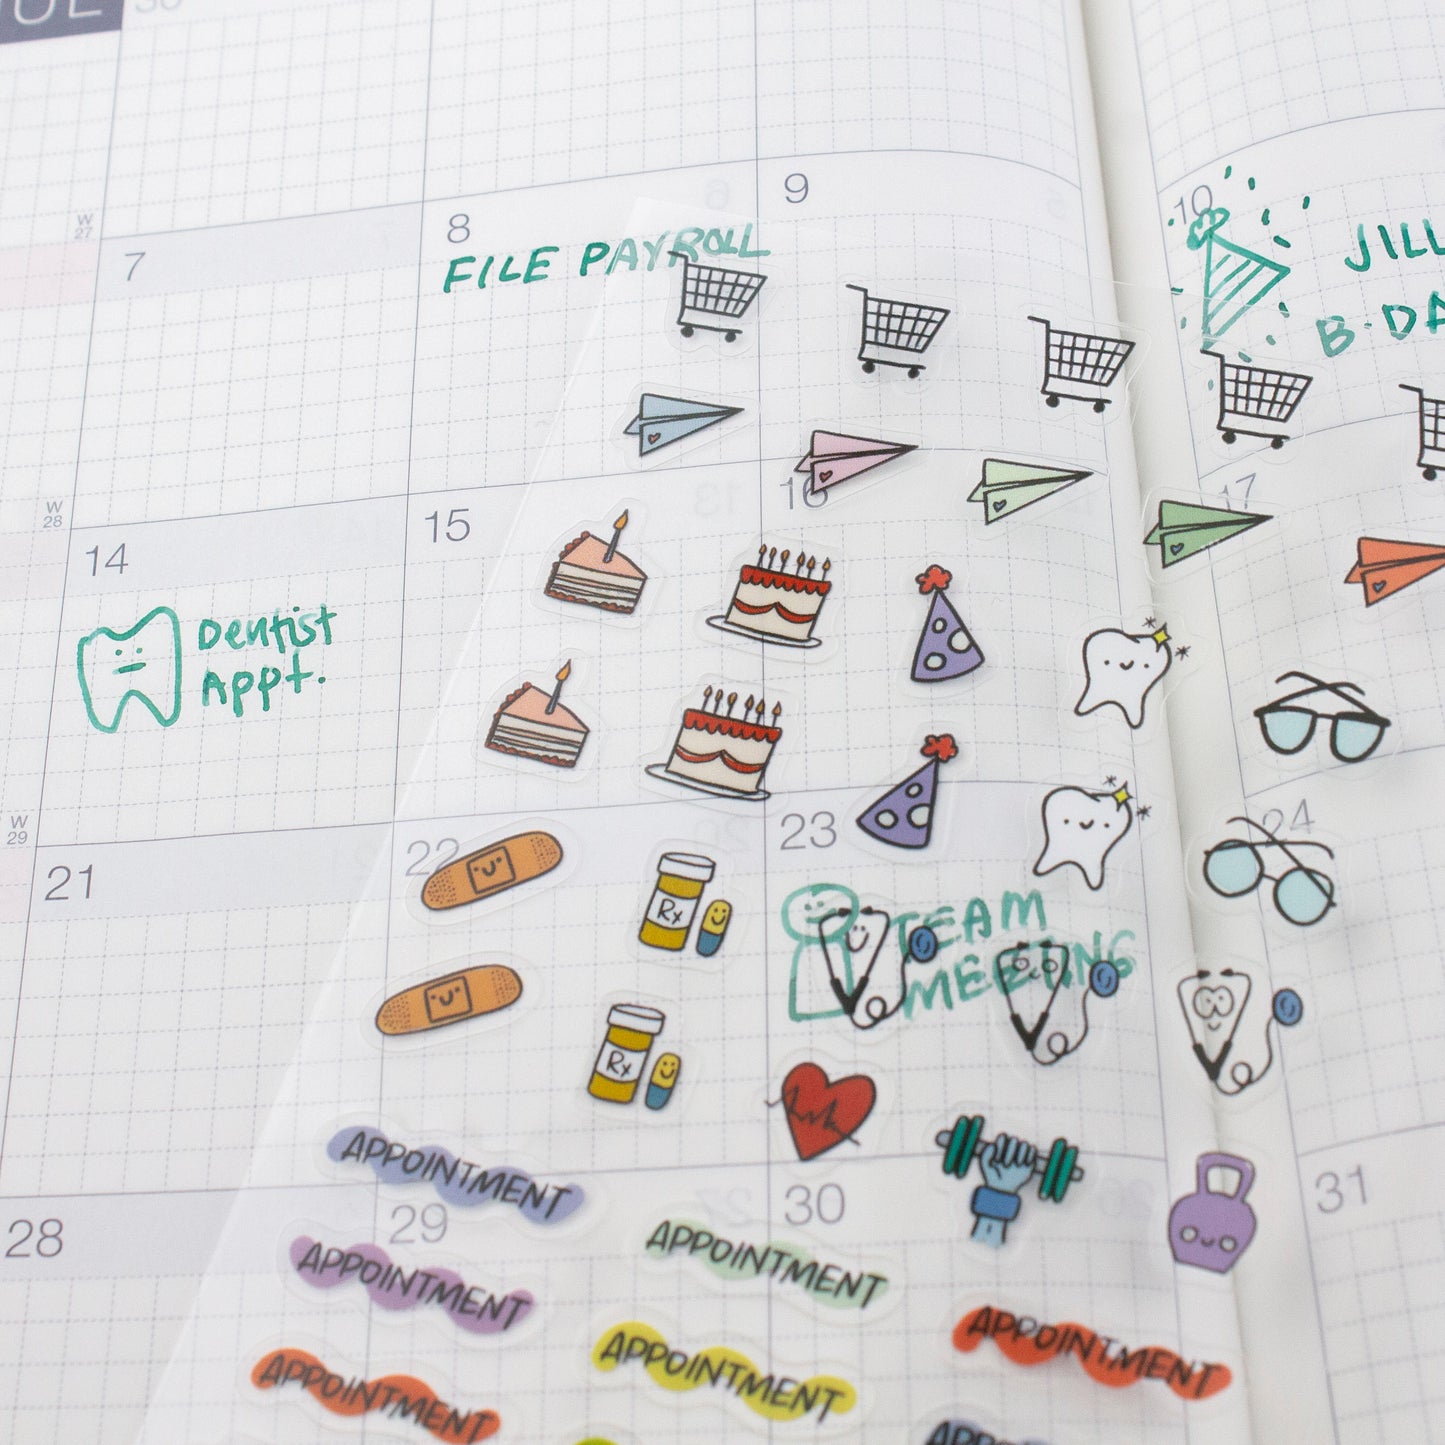 UE
30
W
27
7
8
9
10
FILE PAYROLL
JILL
B-DA
W
28
14
15
16
17
Dentist
Appt.
W
29
21
22
23
24
Rx
TEAM
MEETING
Rx
28
29
30
31
APPOINTMENT
APPOINTMENT
APPOINTMENT
APPOINTMENT
APPOINTMENT
APPOINTMENT